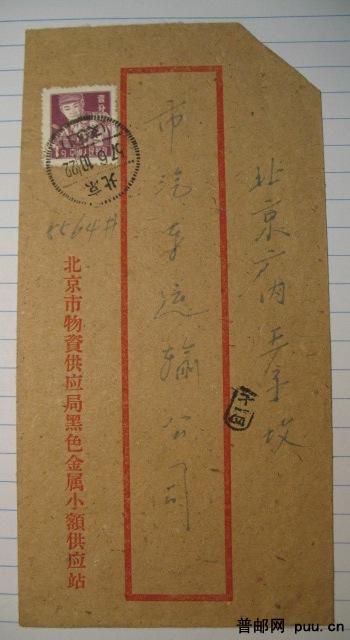 北京广内王子坟
市汽车运输公司
北京市物資供应局黑色金属小額供应站
5564#
57.6.10.22
北京
壹分
普邮网 puu.cn